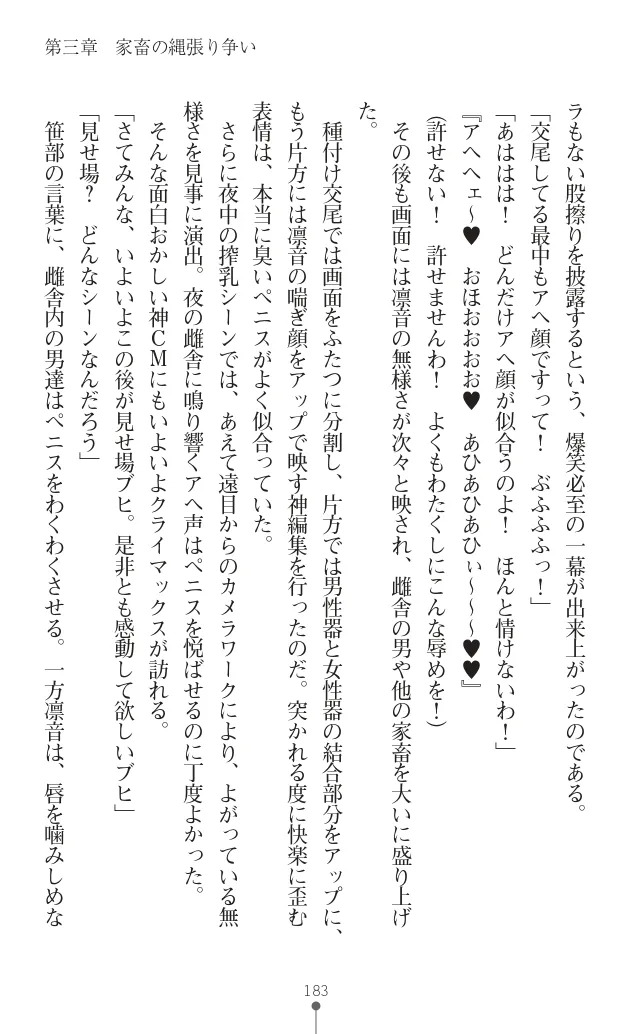 第三章　家畜の縄張り争い
ラもない股擦りを披露するという、爆笑必至の一幕が出来上がったのである。
「交尾してる最中もアヘ顔ですって！　ぶふふふっ！」
「あははは！　どんだけアヘ顔が似合うのよ！　ほんと情けないわ！」
『アへヘェ～♥　おほおおおお♥　あひあひあひぃ～～～♥♥』
(許せない！　許せませんわ！　よくもわたくしにこんな辱めを！)
その後も画面には凛音の無様さが次々と映され、雌舎の男や他の家畜を大いに盛り上げ
た。
種付け交尾では画面をふたつに分割し、片方では男性器と女性器の結合部分をアップに、
もう片方には凛音の喘ぎ顔をアップで映す神編集を行ったのだ。突かれる度に快楽に歪む
表情は、本当に臭いペニスがよく似合っていた。
さらに夜中の搾乳シーンでは、あえて遠目からのカメラワークにより、よがっている無
様さを見事に演出。夜の雌舎に鳴り響くアヘ声はペニスを悦ばせるのに丁度よかった。
そんな面白おかしい神ＣＭにもいよいよクライマックスが訪れる。
「さてみんな、いよいよこの後が見せ場ブヒ。是非とも感動して欲しいブヒ」
「見せ場？　どんなシーンなんだろう」
笹部の言葉に、雌舎内の男達はペニスをわくわくさせる。一方凛音は、唇を噛みしめな
183